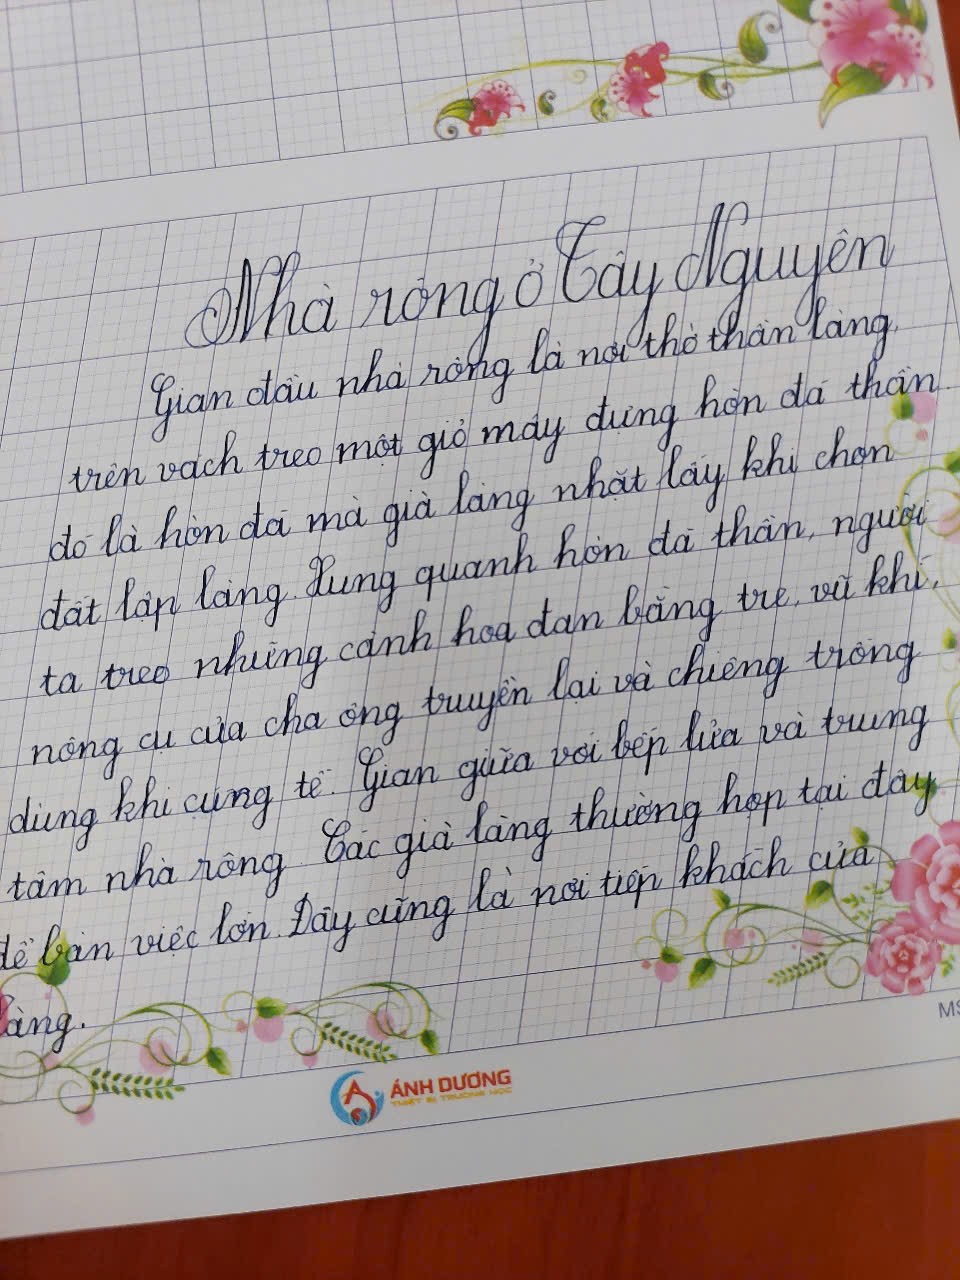 Nhà rông ở Tây Nguyên
Gian đầu nhà rông là nơi thờ thần làng,
trên vách treo một giỏ mây đựng hòn đá thần.
đó là hòn đá mà già làng nhặt lấy khi chọn
đất lập làng. Xung quanh hòn đá thần, người
ta treo những cành hoa đan bằng tre, vũ khí,
nông cụ của cha ông truyền lại và chiêng trống
dùng khi cúng tế. Gian giữa với bếp lửa và trung
tâm nhà rông. Các già làng thường họp tại đây
để bàn việc lớn. Đây cũng là nơi tiếp khách của
làng.
ÁNH DƯƠNG
THIẾT BỊ TRƯỜNG HỌC